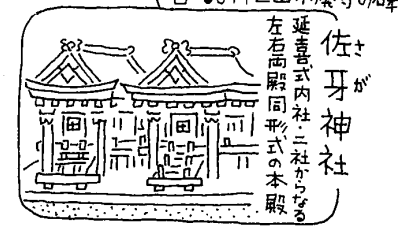 佐牙神社
さが
延喜式内社・二社からなる
左右両殿同形式の本殿